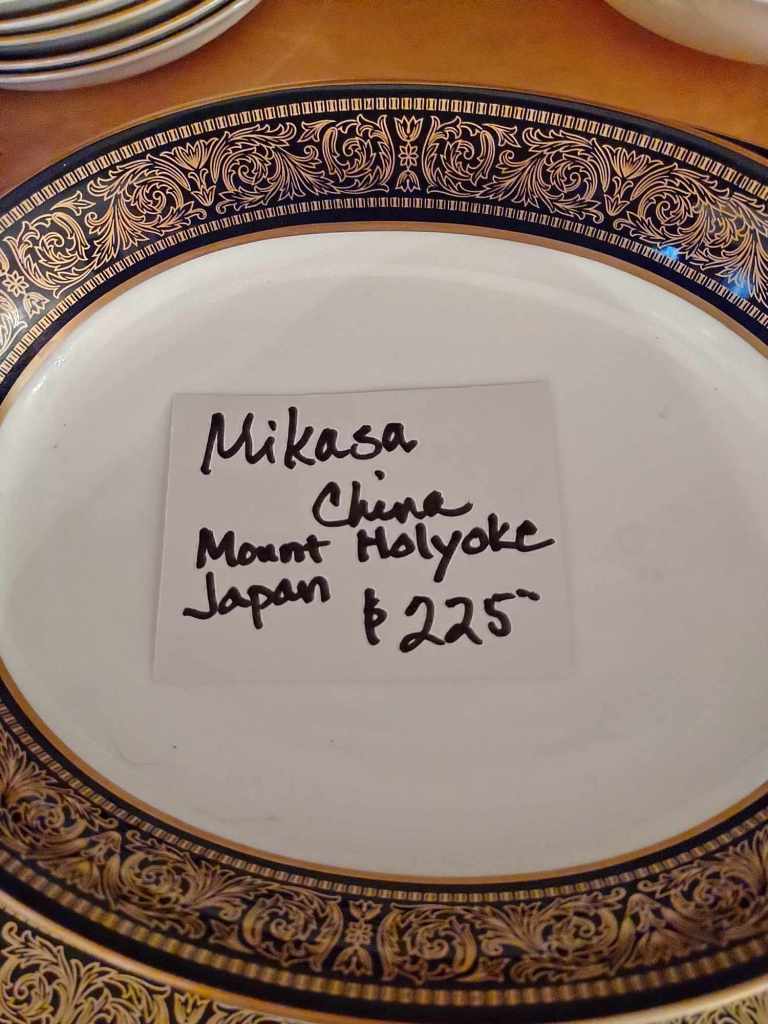 Mikasa
China
Mount Holyoke
Japan $225